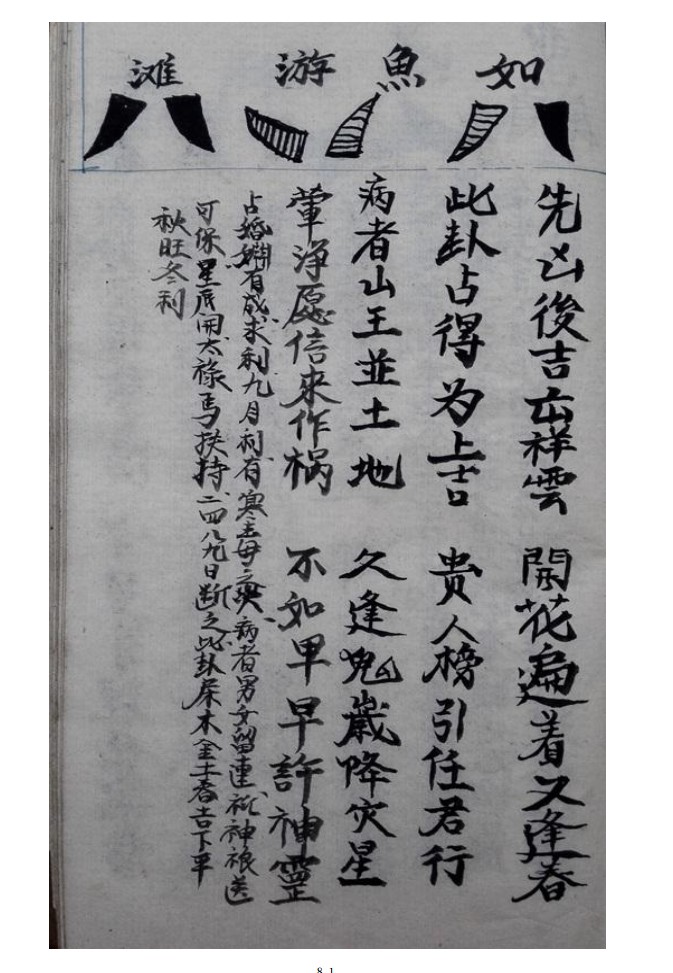 如魚游滩
先凶後吉出祥雲 開花遍着又逢春
此卦占得为上吉 贵人榜引任君行
病者山王並土地 久逢鬼嵗降灾星
葷浄愿信來作祸 不如早早許神靈
占婚姻有成求利九月利有寒 病者男女留連 神 送
可保星辰開大禄馬扶持二四八九日断之此卦属木金土春吉下平
秋旺冬利
8 1